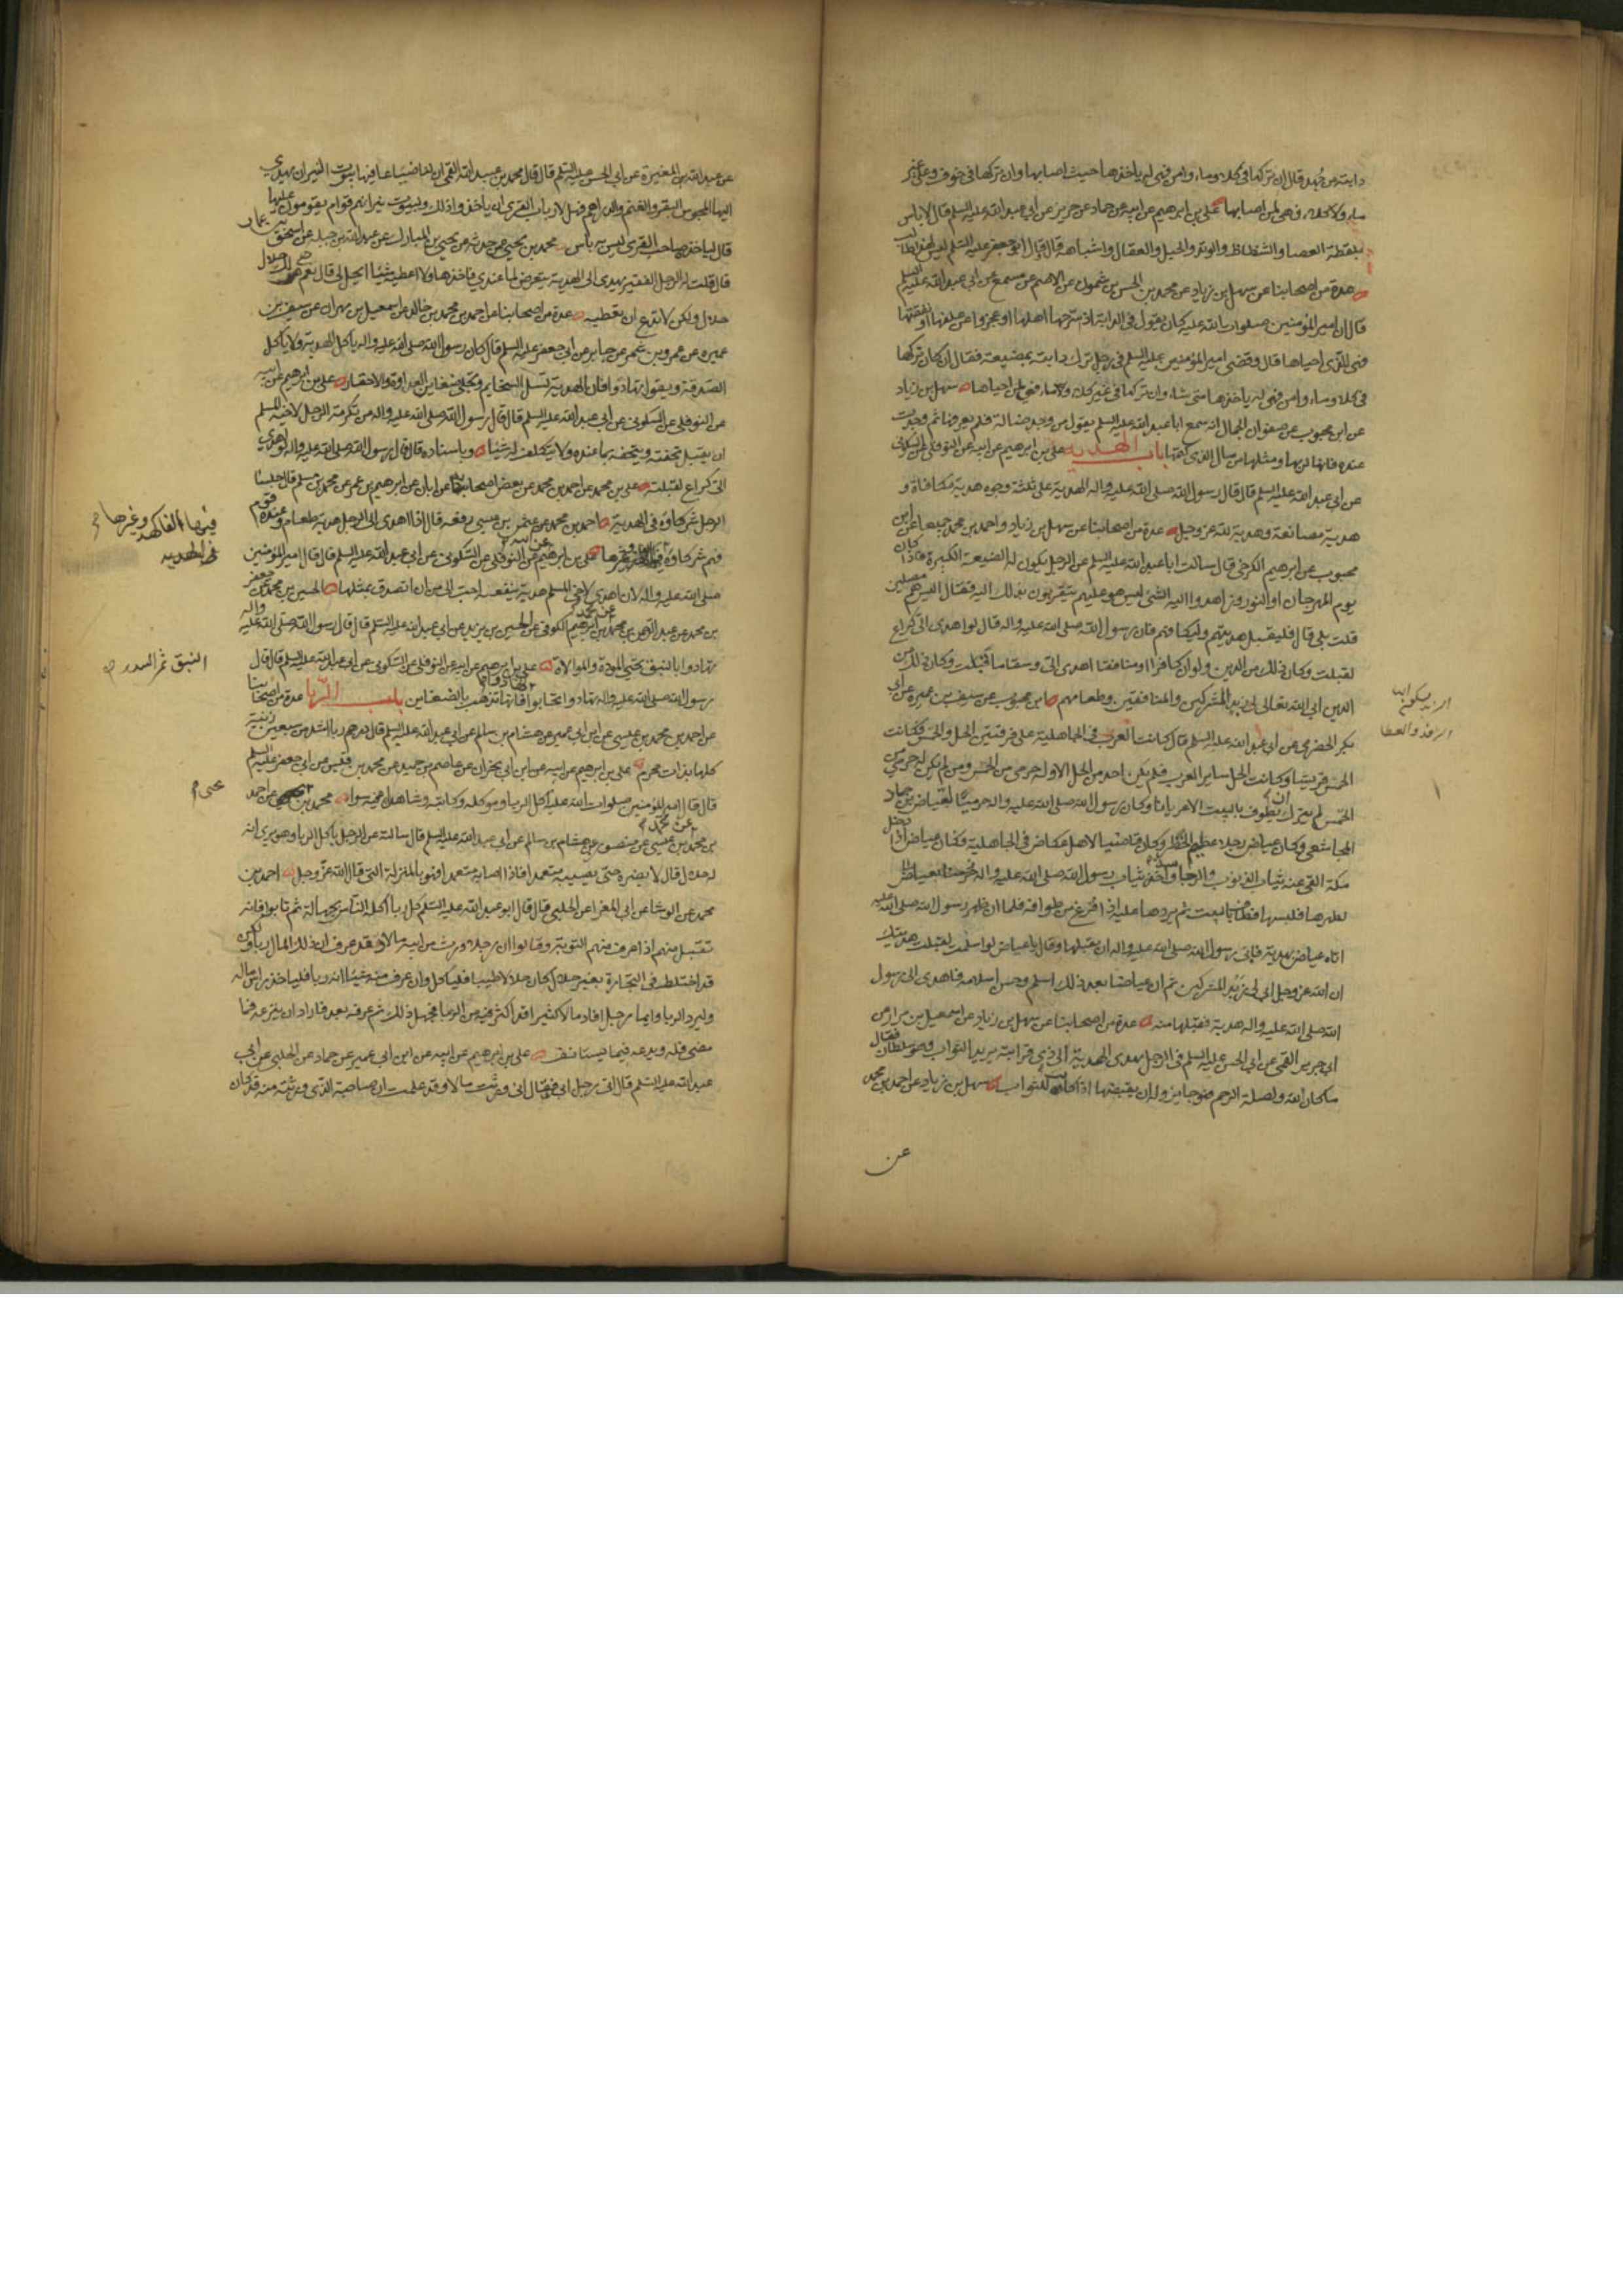 دابته من جهد قال ان تركها في كلاء وماء وامن فهي له ياخذها حيث اصابها وان تركها في خوف وعلى غير
ماء ولا كلاء فهي لمن اصابها علي بن ابرهيم عن ابيه عن حماد عن حريز عن ابي عبد الله عليه السلم قال لا باس
بلقطة العصا والشظاظ والوتد والحبل والعقال واشباهه قال قال ابو جعفر عليه السلم ليس لهذا طالب
عدة من اصحابنا عن سهل بن زياد عن محمد بن الحسن بن شمون عن الاصم عن مسمع عن ابي عبد الله عليه السلم
قال ان امير المؤمنين صلوات الله عليه كان يقول في الدابة اذ سرحها اهلها او عجزوا عن علفها او نفقتها
فهي للذي احياها قال وقضى امير المؤمنين عليه السلم في رجل ترك دابته بمضيعة فقال ان كان تركها
في كلاء وماء وامن فهي له ياخذها متى شاء وان تركها في غير كلاء ولا ماء فهي لمن احياها سهل بن زياد
عن ابن محبوب عن صفوان الجمال انه سمع ابا عبد الله عليه السلم يقول من وجد ضالة فلم يعرفها ثم وجدت
عنده فانها لربها ومثلها من مال الذي كتمها باب الهدية علي بن ابرهيم عن ابيه عن النوفلي عن السكوني
عن ابي عبد الله عليه السلم قال قال رسول الله صلى الله عليه واله الهدية على ثلثة وجوه هدية مكافاة و
هدية مصانعة وهدية لله عز وجل عدة من اصحابنا عن سهل بن زياد واحمد بن محمد جميعا عن ابن
محبوب عن ابرهيم الكرخي قال سالت ابا عبد الله عليه السلم عن الرجل يكون له الضيعة الكبيرة فاذا كان
يوم المهرجان او النوروز اهدوا اليه الشئ ليس هو عليهم يتقربون بذلك اليه فقال اليس هم مصلين
قلت بلى قال فليقبل هديتهم وليكافهم فان رسول الله صلى الله عليه واله قال لو اهدي الي كراع
لقبلت وكان ذلك من الدين ولو ان كافرا او منافقا اهدى الي وسقا ما قبلت وكان ذلك من
الدين ابى الله تعالى لي زبد المشركين والمنافقين وطعامهم ابن محبوب عن سيف بن عميرة عن ابي
بكر الحضرمي عن ابي عبد الله عليه السلم قال كانت العرب في الجاهلية على فرقتين الحل والحمس فكانت
الحمس قريشا وكانت الحل ساير العرب فلم يكن احد من الحل الا وله حرمي من الحمس ومن لم يكن له حرمي من
الحمس لم يترك ان يطوف بالبيت الا عريانا وكان رسول الله صلى الله عليه واله حرميا لعياض بن حمار
المجاشعي وكان عياض رجلا عظيم الخطر وكان قاضيا لاهل عكاض في الجاهلية فكان عياض اذا دخل
مكة القى عنه ثياب الذنوب والرجاسة واخذ ثياب رسول الله صلى الله عليه واله
لطهرها فلبسها فطاف بالبيت ثم يردها عليه اذا فرغ من طوافه فلما ان ظهر رسول الله صلى الله عليه
اتاه عياض بهدية فابى رسول الله صلى الله عليه واله ان يقبلها وقال يا عياض لو اسلمت لقبلت هديتك
ان الله عز وجل ابى لي زبد المشركين ثم ان عياضا بعد ذلك اسلم وحسن اسلامه فاهدى الى رسول
الله صلى الله عليه واله هدية فقبلها منه عدة من اصحابنا عن سهل بن زياد عن اسمعيل بن مرار عن
ابي جرير القمي عن ابي الحسن عليه السلم في الرجل يهدي الهدية الى ذي قرابته يريد الثواب وهو سلطان فقال
ما كان لله ولصلة الرحم فهو جايز وله ان يقبضها اذا كان للثواب سهل بن زياد عن احمد بن محمد
عن
الزبد بسكون الباء
الرفد والعطا
عن عبد الله بن المغيرة عن ابي الحسن عليه السلم قال قال محمد بن عبيد الله القمي ان لنا ضياعا فيها بيوت النيران يهدي
اليها المجوس البقر والغنم والدراهم فهل لارباب القرى ان ياخذوا ذلك ولبيوت نيرانهم قوام يقومون عليها
قال لياخذ صاحب القرى ليس به باس محمد بن يحيى عمن حدثه عن يحيى بن المبارك عن عبد الله بن جبلة عن اسحق بن عمار
قال قلت له الرجل الفقير يهدي الى الهدية يتعرض لما عندي فاخذها ولا اعطيه شيئا ايحل لي قال نعم هي لك حلال
حلال ولكن لا تدع ان تعطيه عدة من اصحابنا عن احمد بن محمد بن خالد عن اسمعيل بن مهران عن سيف بن
عميرة عن عمرو بن شمر عن جابر عن ابي جعفر عليه السلم قال كان رسول الله صلى الله عليه واله ياكل الهدية ولا ياكل
الصدقة ويقول تهادوا فان الهدية تسل السخايم وتجلي ضغاين العداوة والاحقاد علي بن ابرهيم عن ابيه
عن النوفلي عن السكوني عن ابي عبد الله عليه السلم قال قال رسول الله صلى الله عليه واله من تكرمة الرجل لاخيه المسلم
ان يقبل تحفته ويتحفه بما عنده ولا يتكلف له شيئا وباسناده قال قال رسول الله صلى الله عليه واله لو اهدي
الى كراع لقبلته علي بن محمد عن احمد بن محمد عن بعض اصحابنا عن ابان عن ابرهيم بن عمر عن محمد بن مسلم قال جلساء
الرجل شركاؤه في الهدية احمد بن محمد عن عثمن بن عيسى رفعه قال اذا اهدي الى الرجل هدية طعام وعنده قوم
فهم شركاؤه فيها علي بن ابرهيم عن ابيه عن النوفلي عن السكوني عن ابي عبد الله عليه السلم قال قال امير المؤمنين
صلى الله عليه واله لان اهدي لاخي المسلم هدية تنفعه احب الى من ان اتصدق بمثلها الحسين بن محمد عن جعفر
بن محمد عن عبد الرحمن بن محمد عن محمد بن ابرهيم الكوفي عن الحسين بن يزيد عن ابي عبد الله عليه السلم قال قال رسول الله صلى الله عليه واله
تهادوا بالنبق تحيى المودة والموالاة علي بن ابرهيم عن ابيه عن النوفلي عن السكوني عن ابي عبد الله عليه السلم قال قال
رسول الله صلى الله عليه واله تهادوا تحابوا تهادوا فانها تذهب بالضغاين باب الربا عدة من اصحابنا
عن احمد بن محمد بن عيسى عن ابن ابي عمير عن هشام بن سالم عن ابي عبد الله عليه السلم قال درهم ربا اشد من سبعين زنية
كلها بذات محرم علي بن ابرهيم عن ابيه عن ابن ابي نجران عن عاصم بن حميد عن محمد بن قيس عن ابي جعفر عليه السلم
قال قال امير المؤمنين صلوات الله عليه اكل الربا وموكله وكاتبه وشاهداه فيه سواء محمد بن عن احمد
بن محمد بن عيسى عن منصور عن هشام بن سالم عن ابي عبد الله عليه السلم قال سالته عن الرجل ياكل الربا وهو يرى انه
له حلال قال لا يضره حتى يصيبه متعمدا فاذا اصابه متعمدا فهو بالمنزلة التي قال الله عز وجل احمد بن
محمد عن الوشا عن ابي المغرا عن الحلبي قال قال ابو عبد الله عليه السلم كل ربا اكله الناس بجهالة ثم تابوا فانه
تقبل منهم اذا عرف منهم التوبة وقالوا ان رجلا ورث من ابيه مالا وقد عرف ان في ذلك المال ربا ولكن
قد اختلط في التجارة بغير حلال كان حلالا طيبا فلياكل وان عرف منه شيئا انه ربا فلياخذ راس ماله
وليرد الربا وايما رجل افاد مالا كثيرا قد اكثر فيه من الربا فجهل ذلك ثم عرفه بعد فاراد ان ينزعه فما
مضى فله ويدعه فيما يستانف علي بن ابرهيم عن ابيه عن ابن ابي عمير عن حماد عن الحلبي عن ابي
عبد الله عليه السلم قال اتى رجل ابي فقال اني ورثت مالا وقد علمت ان صاحبه الذي ورثته منه قد كان
فيها الفاكهة وغيرها
النبق ثمر السدر
يحيى